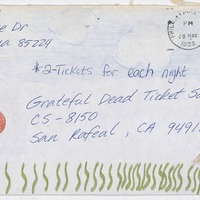 Dr
85224
PM
1993
*2-Tickets for each night
Grateful Dead Ticket
CS-8150
San Rafeal, CA 9491